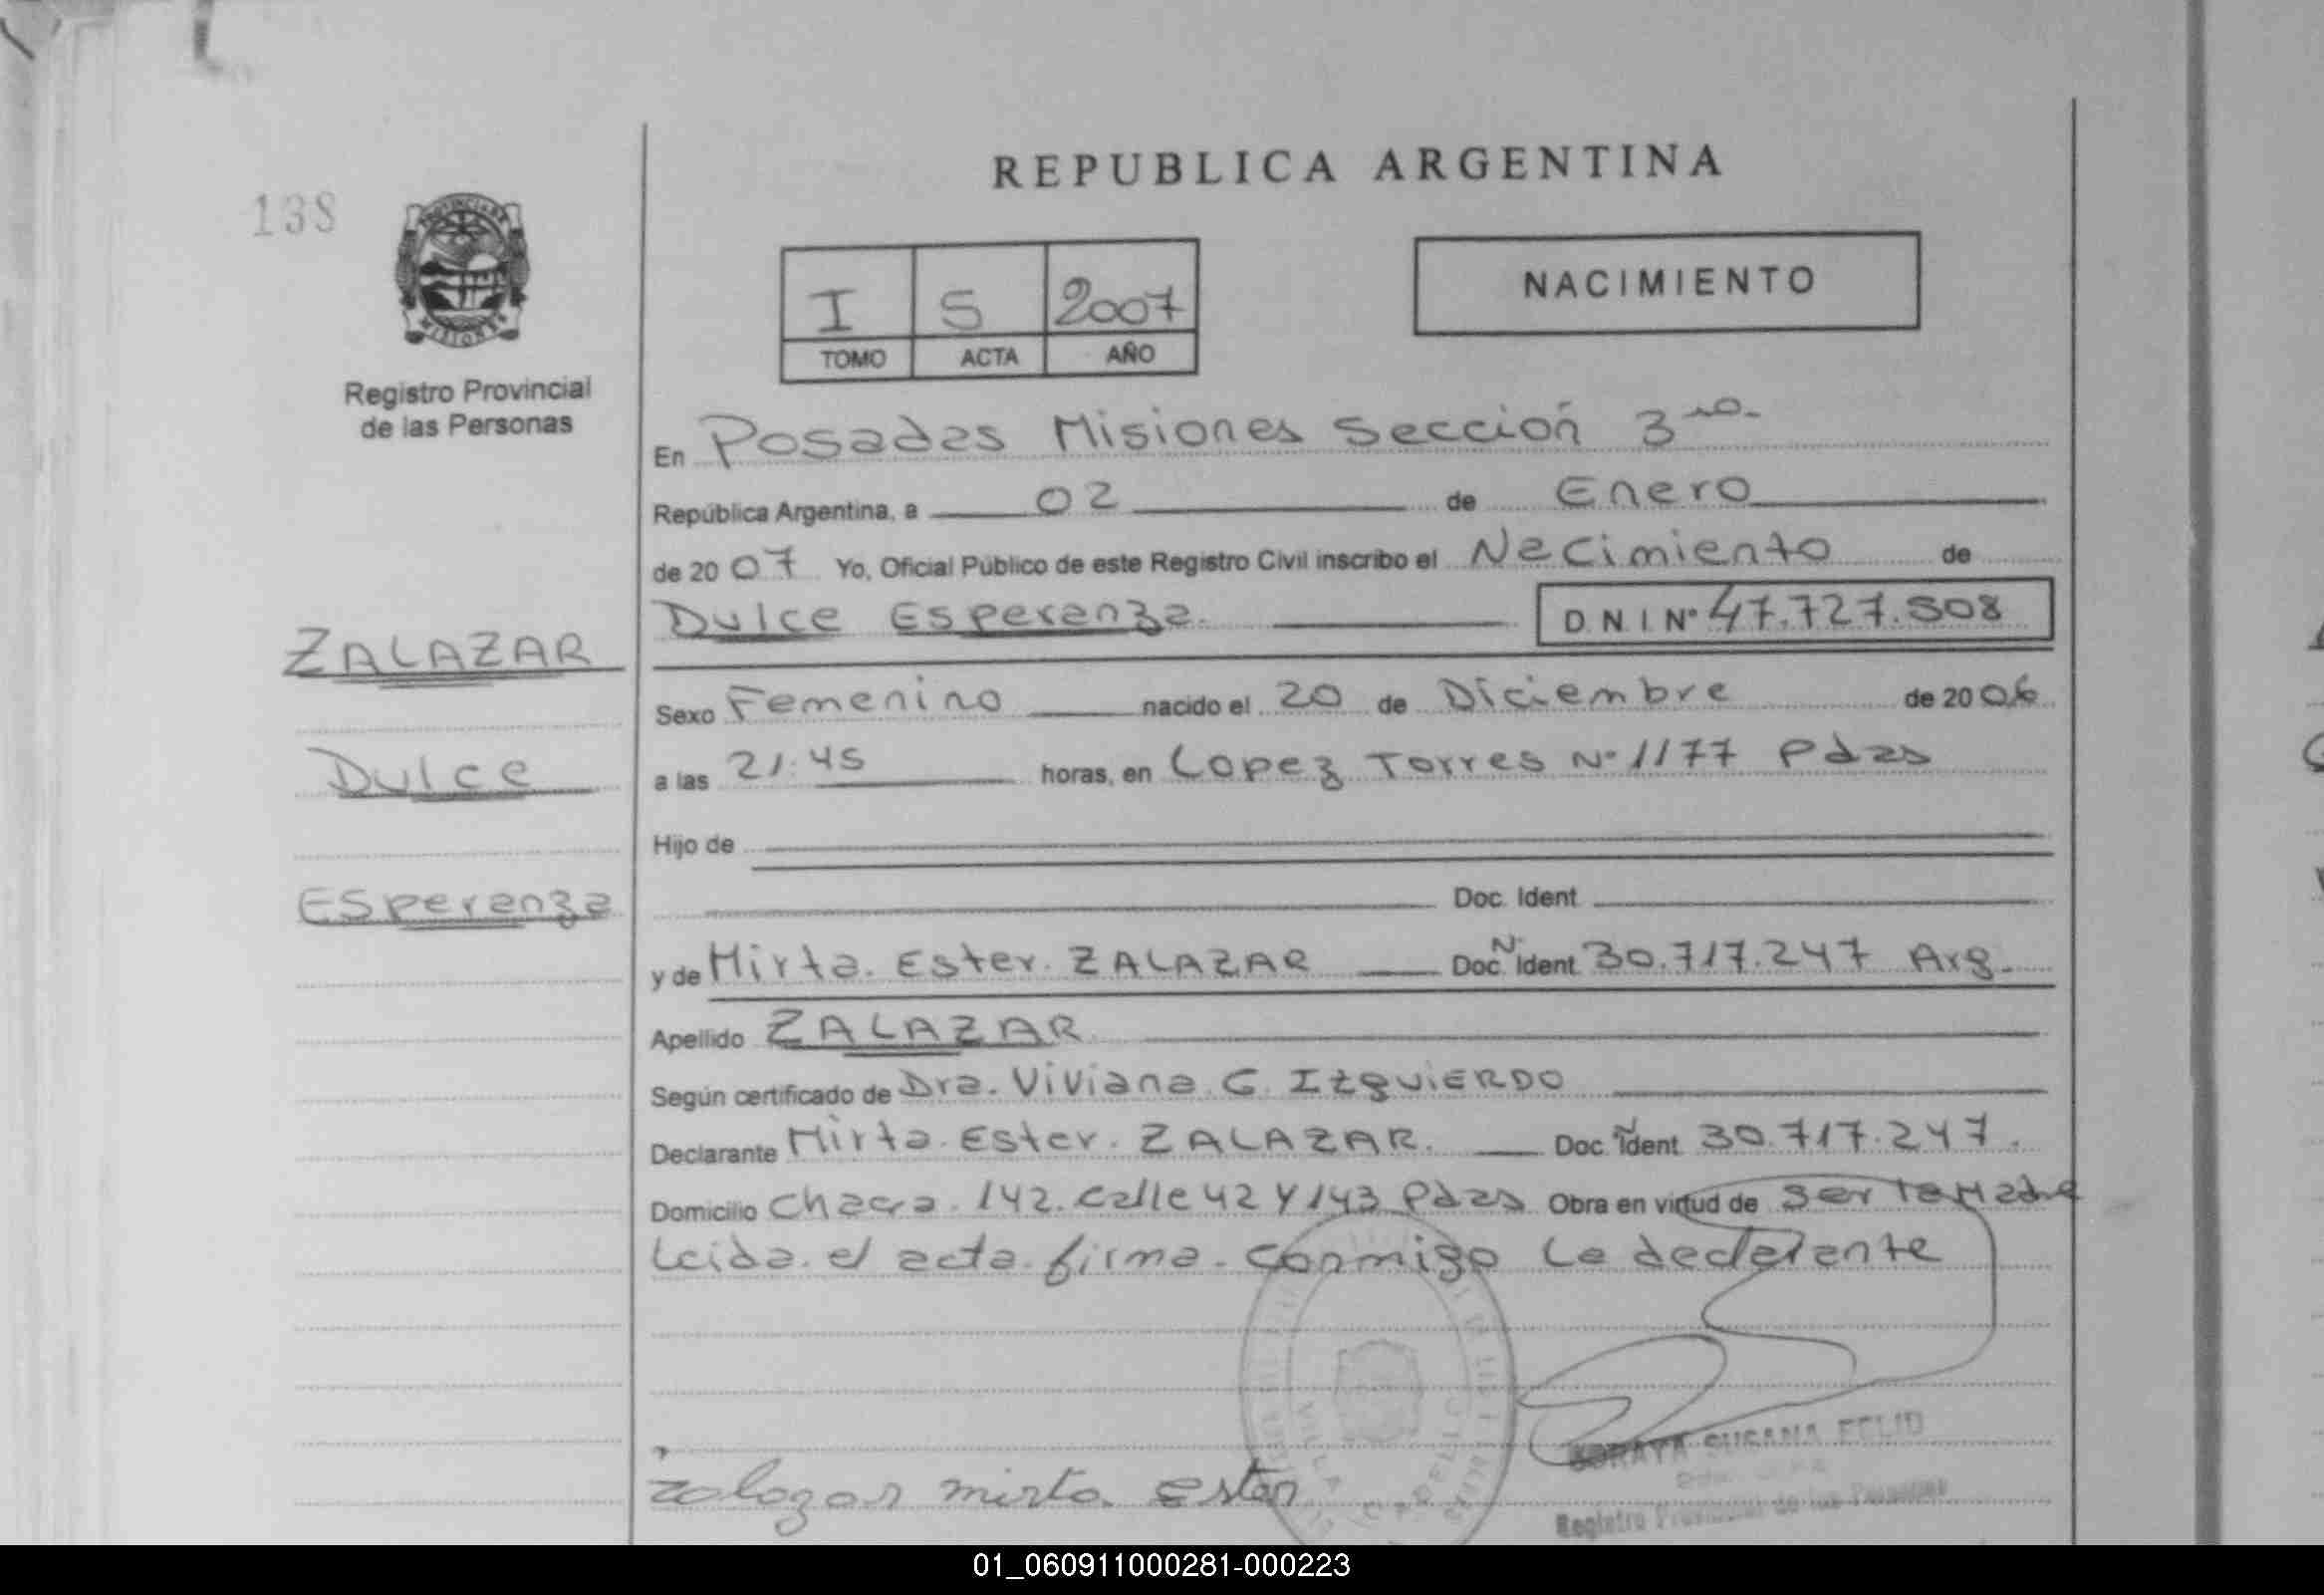 REPUBLICA ARGENTINA
138
PROVINCIA DE
MISIONES
Registro Provincial
de las Personas
NACIMIENTO
I 5 2007
TOMO ACTA AÑO
En Posadas Misiones Sección 3ra.
República Argentina, a 02 de Enero
de 2007 Yo, Oficial Público de este Registro Civil inscribo el Nacimiento de
Dulce Esperanza. D.N.I Nº 47.727.508
ZALAZAR
Dulce
Esperanza
Sexo Femenino nacido el 20 de Diciembre de 2006
a las 21:45 horas, en Lopez Torres Nº 1177 Pdas
Hijo de
Doc. Ident
y de Mirta Ester ZALAZAR Doc. Nº Ident 30.717.247 Arg.
Apellido ZALAZAR
Según certificado de Dra. Viviana G. IZQUIERDO
Declarante Mirta Ester ZALAZAR. Doc. Nº Ident 30.717.247.
Domicilio Chacra 142. Calle 42 y 143 Pdas Obra en virtud de ser la Madre
Leida el acta firma conmigo la declarante
zalazar mirta ester
SORAYA SUSANA
Registro Provincial de las Personas
01_060911000281-000223